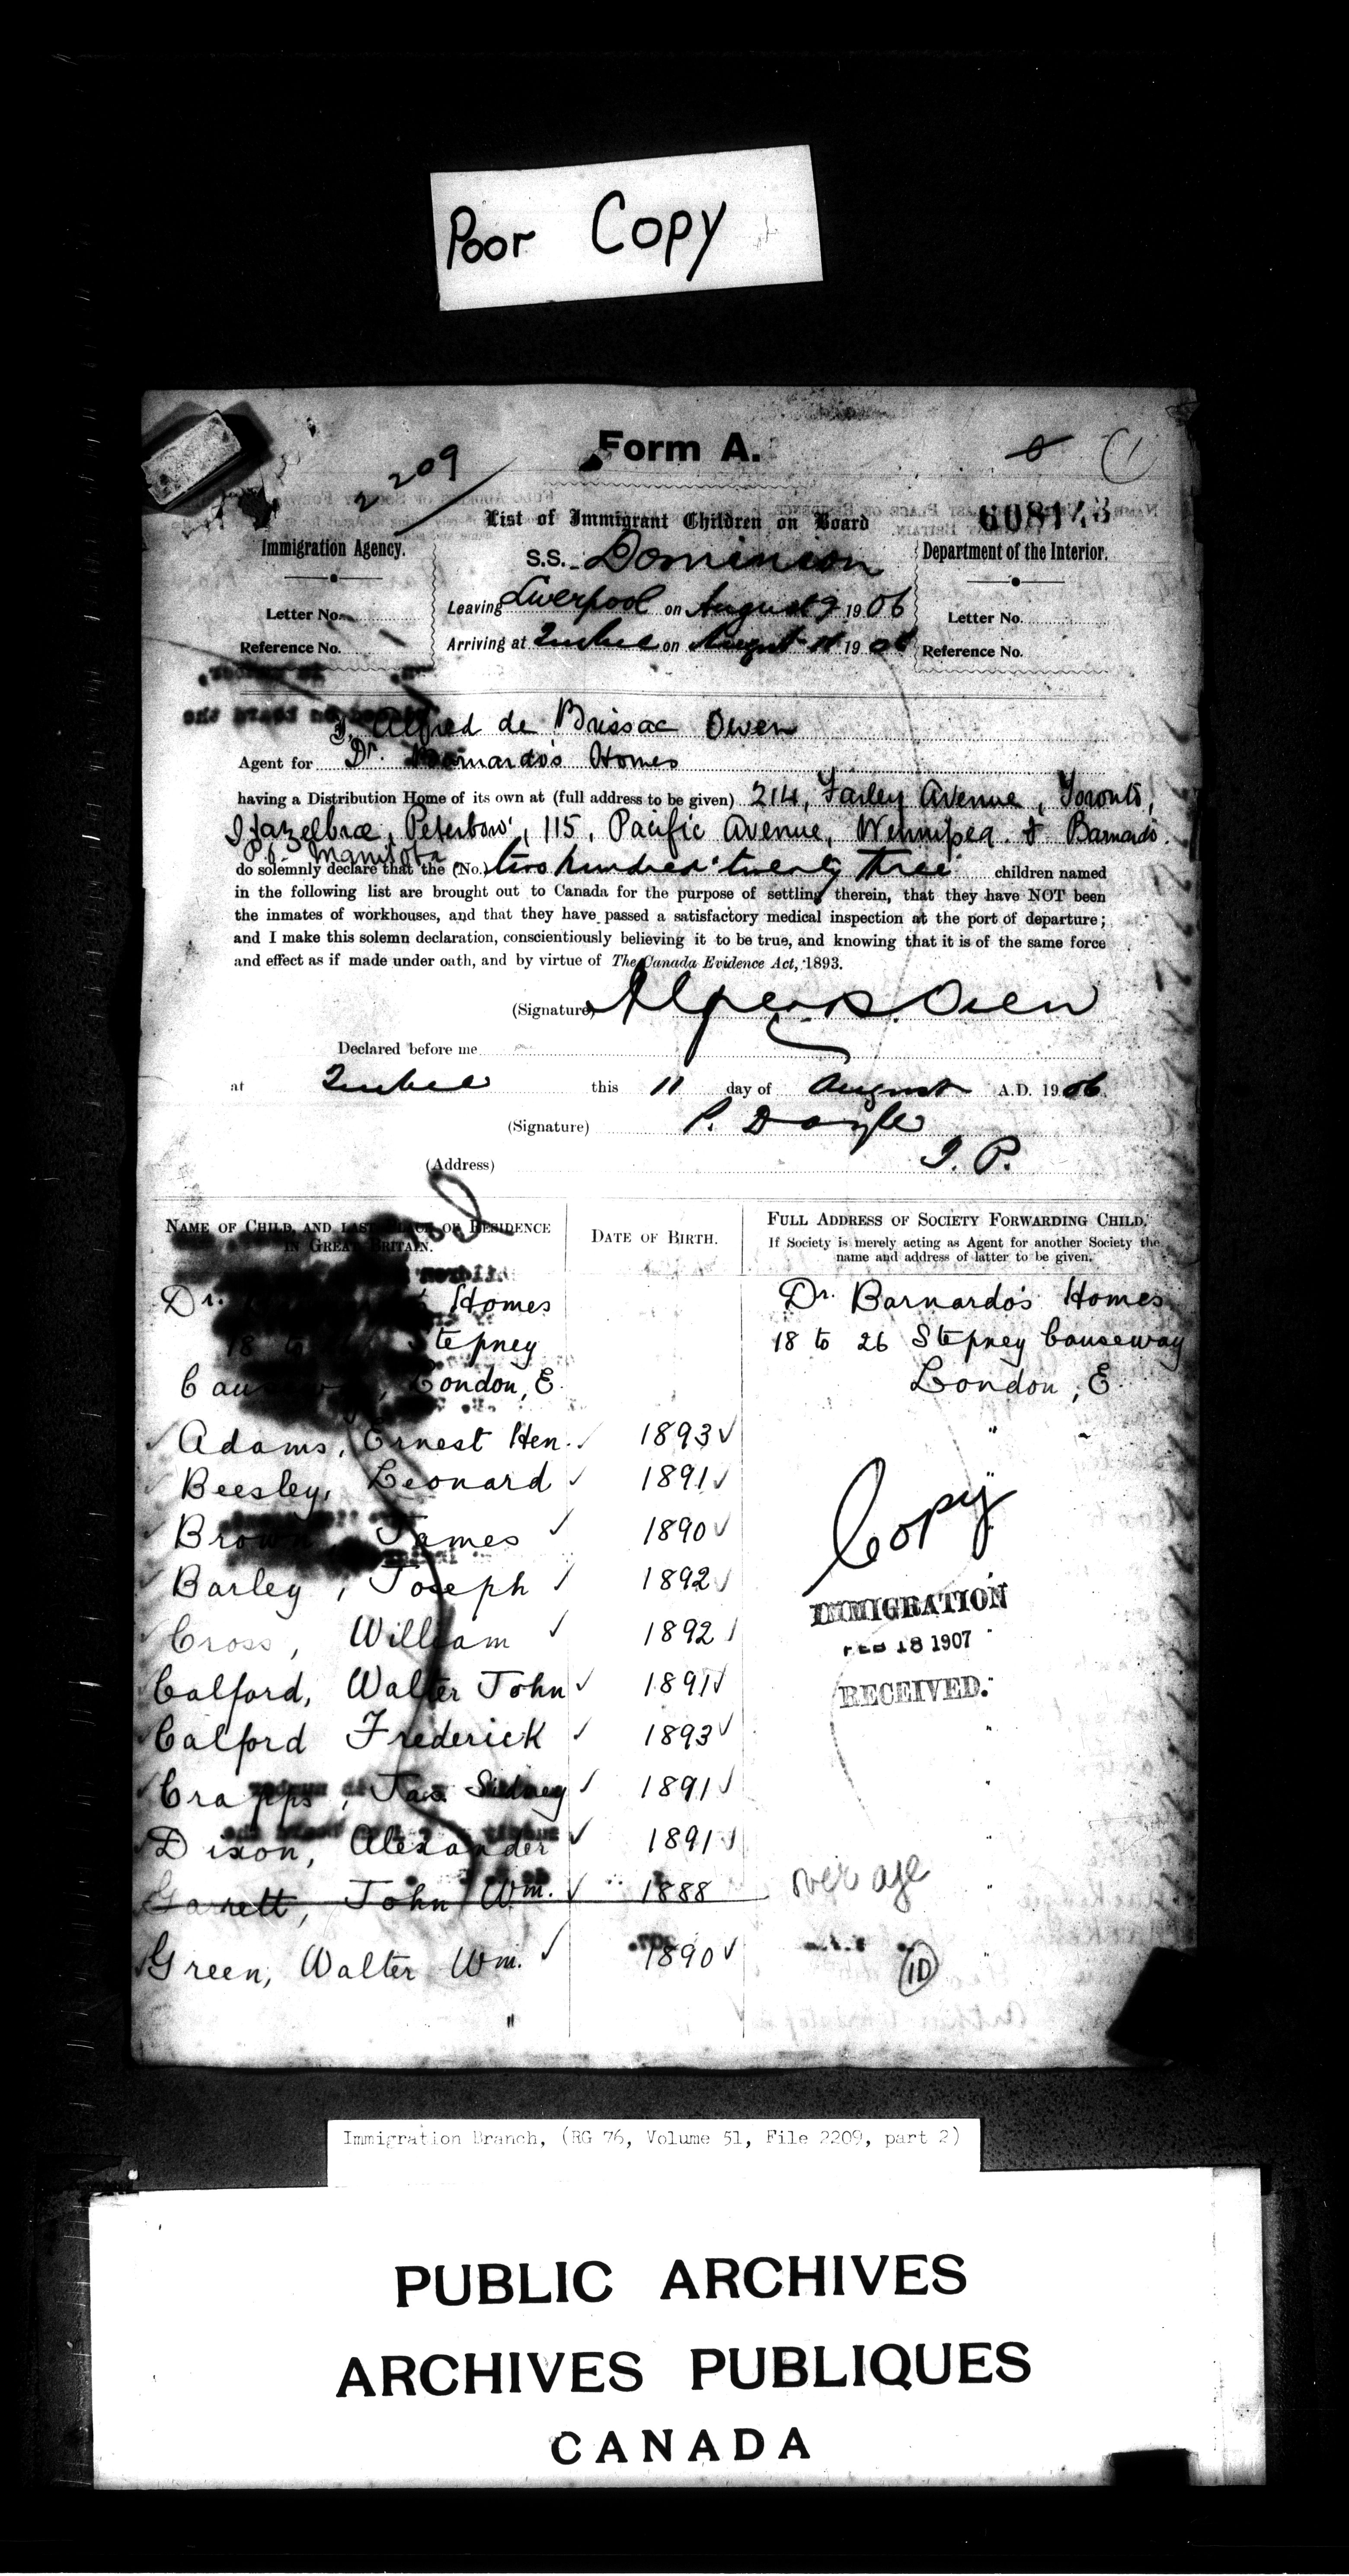 Poor Copy
Form A.
2209
608143
List of Immigrant Children on Board
Immigration Agency.
S.S. Dominion
Department of the Interior.
Letter No.
Leaving Liverpool on August 9 1906
Letter No.
Reference No.
Arriving at Quebec on August 1906
Reference No.
I, Alfred de Brissac Owen
Agent for Dr. Barnardo's Homes
having a Distribution Home of its own at (full address to be given) 214, Farley Avenue, Toronto,
Hazelbrae, Peterboro', 115, Pacific Avenue, Winnipeg. & Barnardo.
P.O. Manitoba
do solemnly declare that the (No.) two hundred twenty three children named
in the following list are brought out to Canada for the purpose of settling therein, that they have NOT been
the inmates of workhouses, and that they have passed a satisfactory medical inspection at the port of departure;
and I make this solemn declaration, conscientiously believing it to be true, and knowing that it is of the same force
and effect as if made under oath, and by virtue of The Canada Evidence Act, 1893.
(Signature) Alfred B. Owen
Declared before me
at Quebec this 11 day of August A.D. 1906
(Signature) P. Doyle
J.P.
(Address)
NAME OF CHILD, AND LAST PLACE OF RESIDENCE
IN GREAT BRITAIN.
DATE OF BIRTH.
FULL ADDRESS OF SOCIETY FORWARDING CHILD.
If Society is merely acting as Agent for another Society the
name and address of latter to be given.
Dr. Homes
Dr. Barnardo's Homes
18 to Stepney
18 to 26 Stepney Causeway
Causeway, London, E.
London, E.
Adams, Ernest Hen. ✓ 1893 ✓ "
Beesley, Leonard ✓ 1891 ✓ "
Copy
Brown, James ✓ 1890 ✓
Barley, Joseph ✓ 1892 ✓ "
IMMIGRATION
Cross, William ✓ 1892 ✓ "
FEB 18 1907
Calford, Walter John ✓ 1891 ✓ "
RECEIVED.
Calford Frederick ✓ 1893 ✓ "
Crapps, Jas. Sidney ✓ 1891 ✓ "
Dixon, Alexander ✓ 1891 ✓ "
Garrett, John Wm. ✓ 1888 over age "
Green, Walter Wm. ✓ 1890 ✓ "
10
"
Immigration Branch, (RG 76, Volume 51, File 2209, part 2)
PUBLIC ARCHIVES
ARCHIVES PUBLIQUES
CANADA